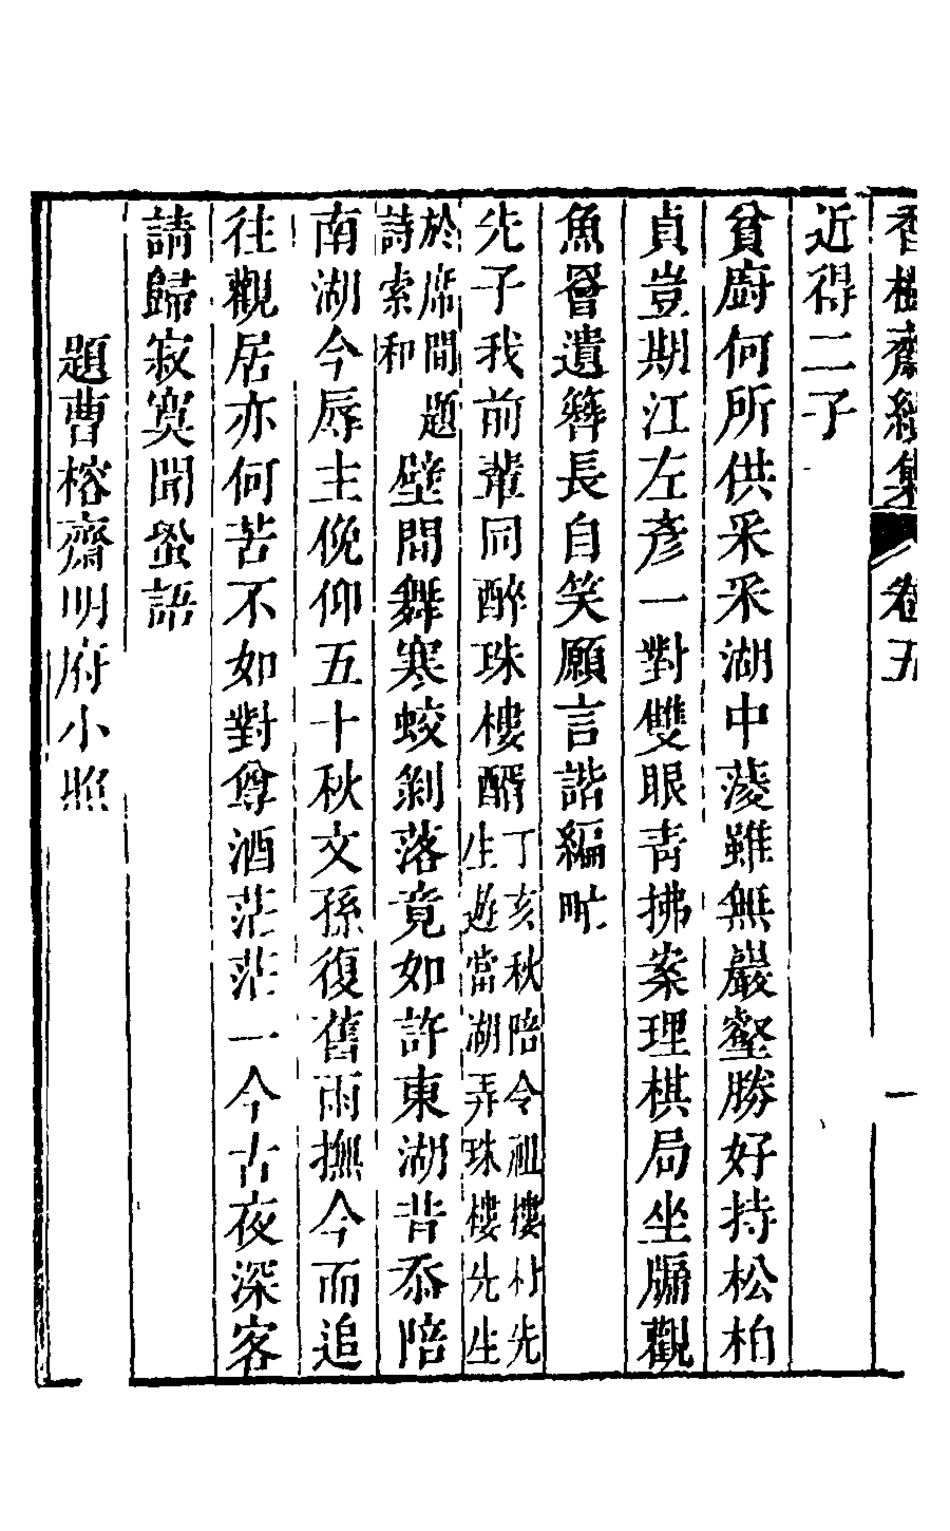 香樹齋續集 卷五 一
近得二子
貧廚何所供采采湖中蔆雖無巖壑勝好持松柏
貞豈期江左彥一對雙眼青拂案理棋局坐牖觀
魚罾遺簪長自笑願言諧編甿
先子我前輩同醉珠樓醑丁亥秋陪令祖樓村先
生遊當湖弄珠樓先生
於席間題
詩索和壁間舞寒蛟剝落竟如許東湖昔忝陪
南湖今辱主俛仰五十秋文孫復舊雨撫今而追
往觀居亦何苦不如對尊酒茫茫一今古夜深客
請歸寂寞聞蛩語
題曹榕齋明府小照